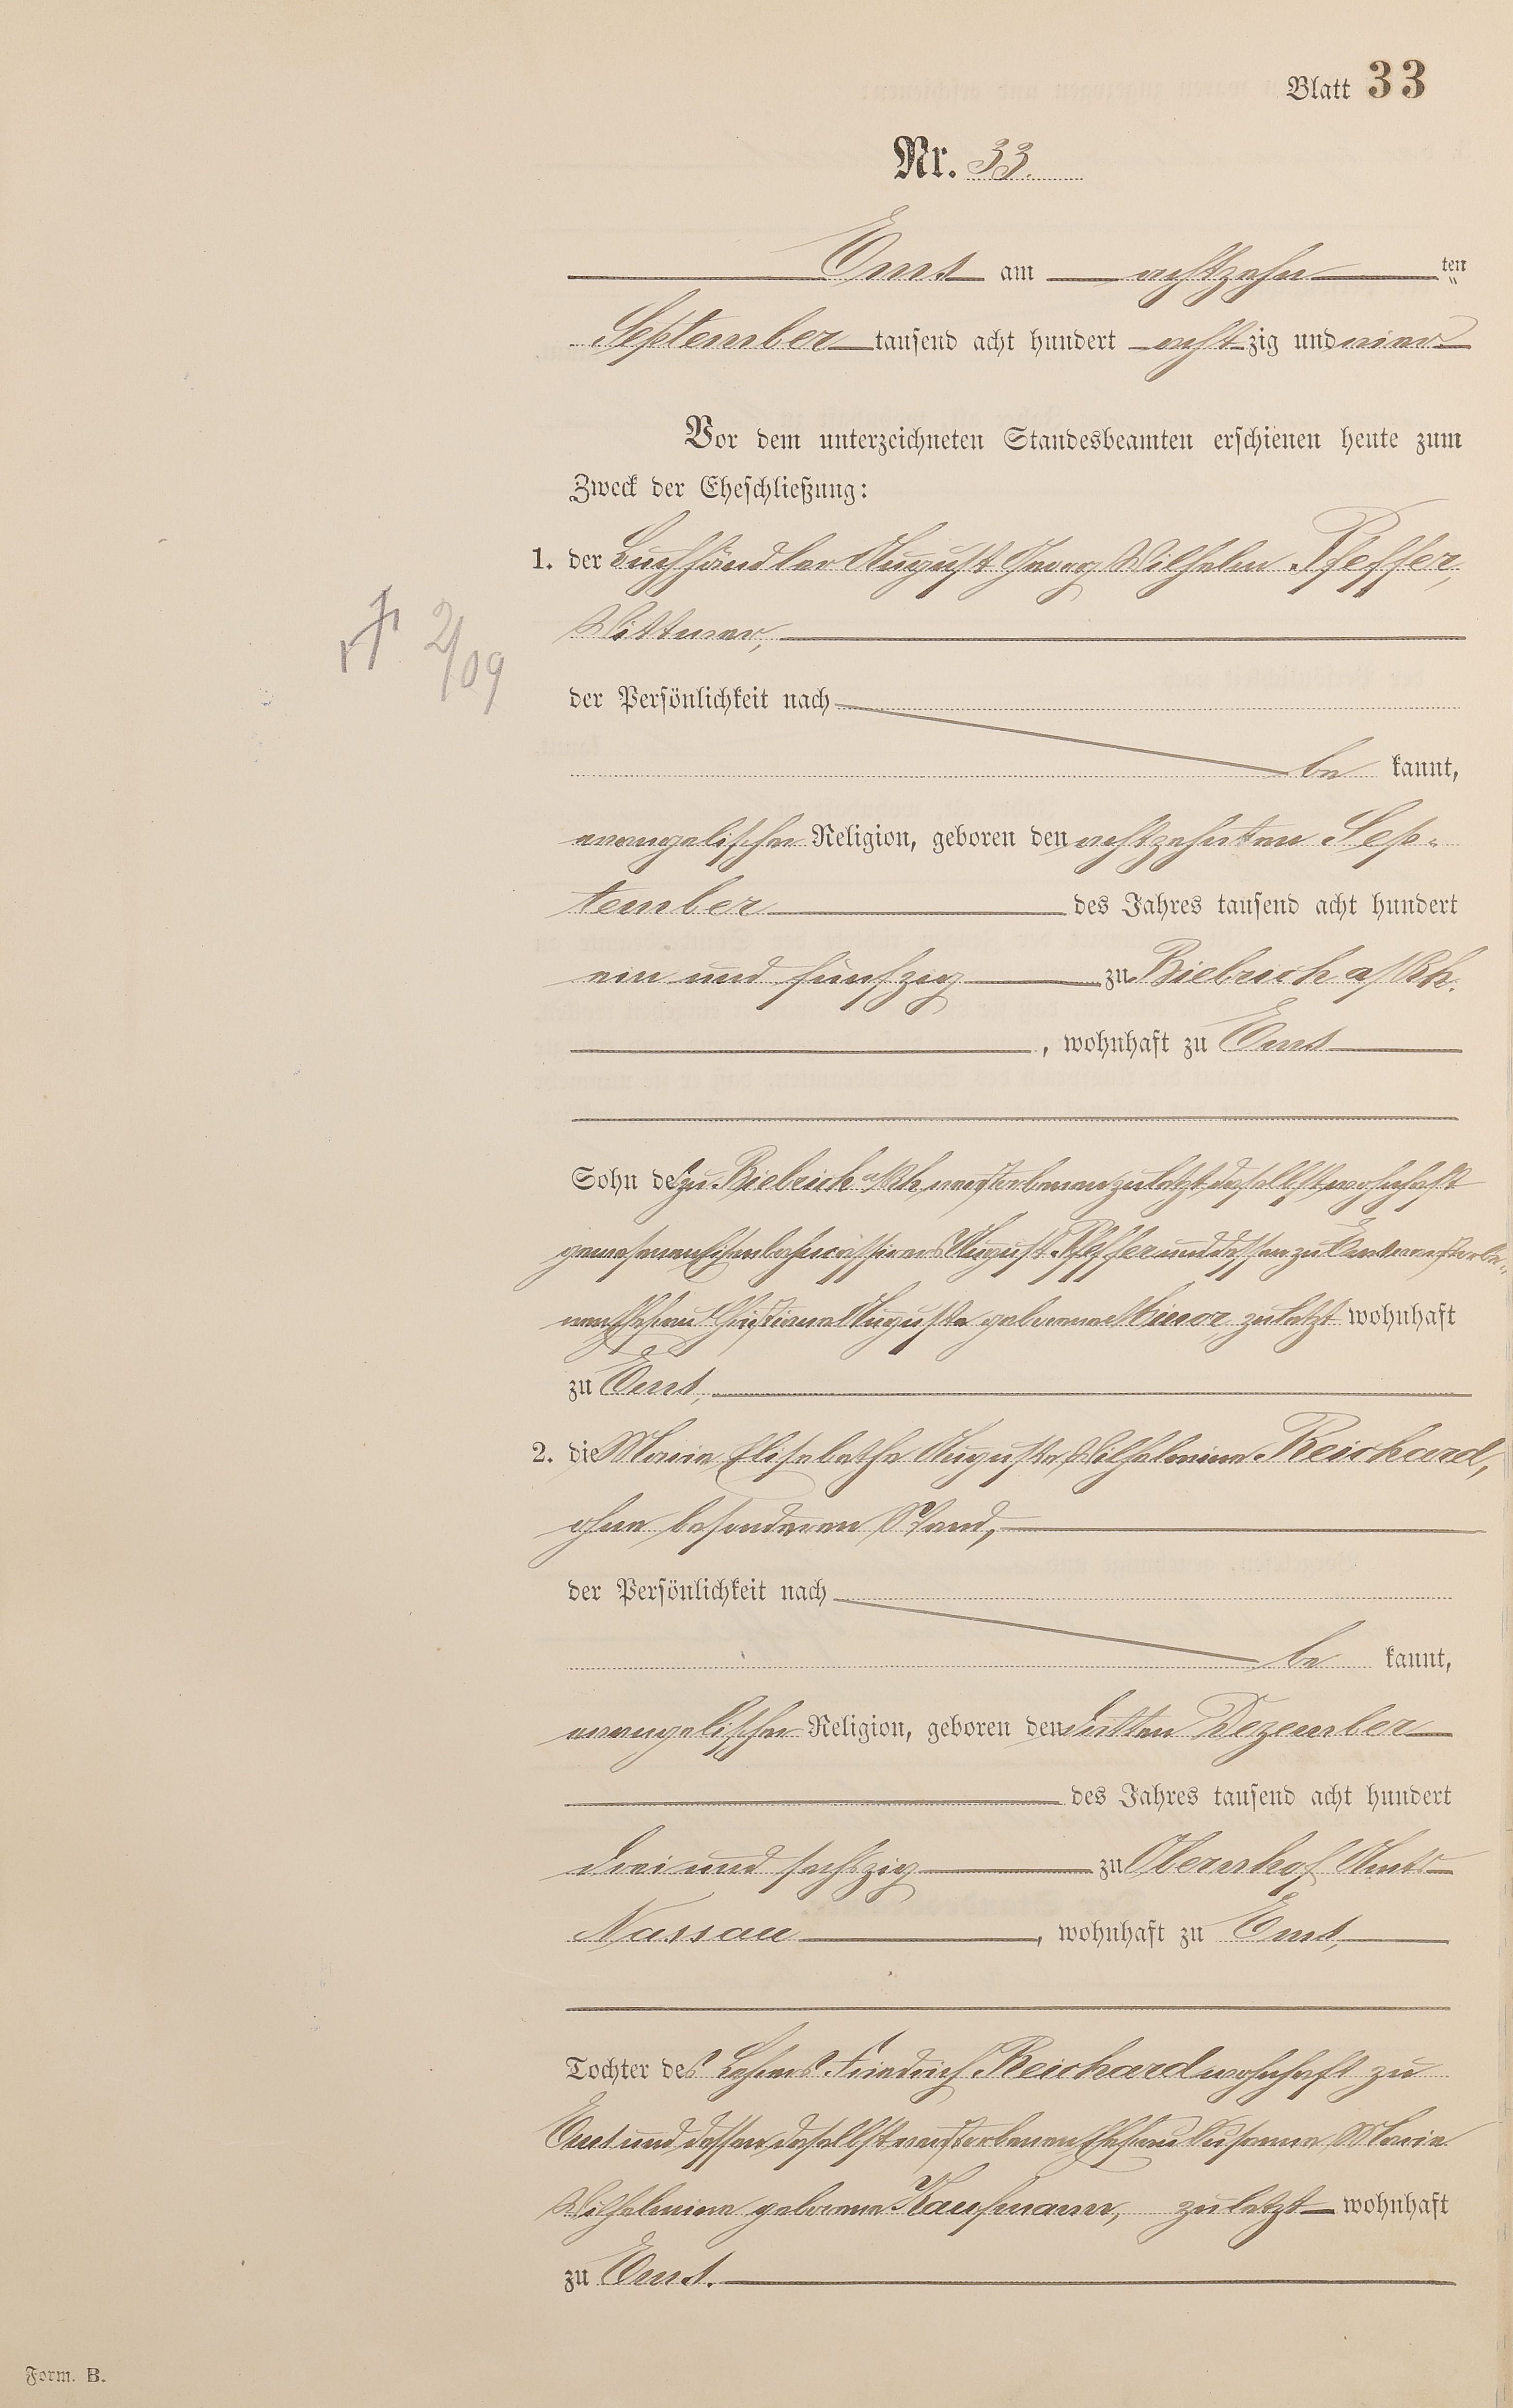 Blatt 33
Nr. 33.
Ems am achtzehn ten
September tausend acht hundert acht zig und vier
Vor dem unterzeichneten Standesbeamten erschienen heute zum
Zweck der Eheschließung:
1. der Buchhändler August Georg Wilhelm Pfeffer,
Wittwer,
† 2/09
der Persönlichkeit nach
be kannt,
evangelischer Religion, geboren den achtzehnten Sep-
tember des Jahres tausend acht hundert
ein und fünfzig zu Biebrich a/Rh.
, wohnhaft zu Ems
Sohn des zu Biebrich a/Rh. verstorbenen zuletzt daselbst wohnhaft
gewesenen August Pfeffer und dessen zu Ems verstorbe-
nen Ehefrau Christiane Auguste geborene zuletzt wohnhaft
zu Ems,
2. die Marie Elisabethe Auguste Wilhelmine Reichard,
ohne besonderen Stand,
der Persönlichkeit nach
be kannt,
evangelischer Religion, geboren den dritten Dezember
des Jahres tausend acht hundert
drei und sechszig zu Obernhof Amts
Nassau, wohnhaft zu Ems,
Tochter des Lehrers Friedrich Reichard wohnhaft zu
Ems und dessen daselbst verstorbenen Ehefrau Susanne Marie
Wilhelmine geborene Kaufmann, zuletzt wohnhaft
zu Ems.
Form. B.